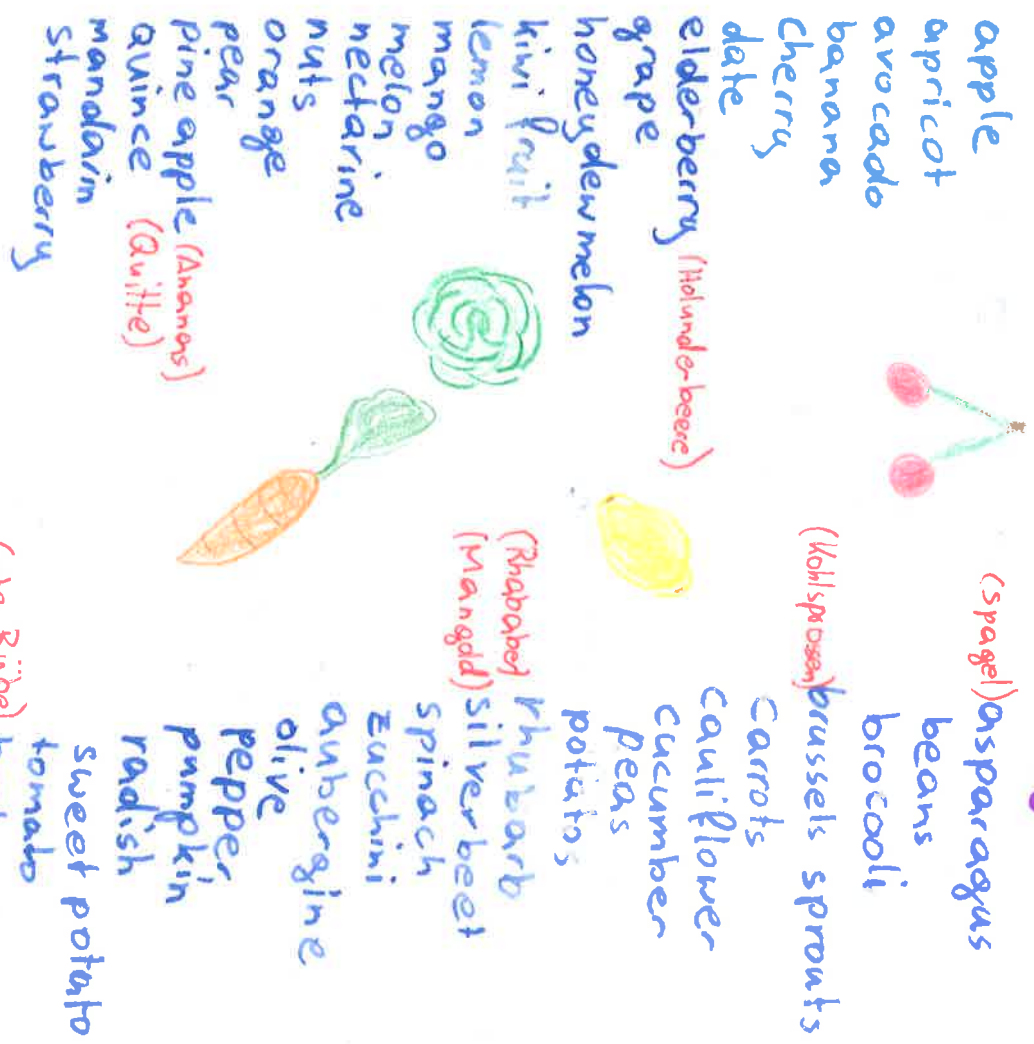 apple
apricot
avocado
banana
cherry
date
elderberry (Holunderbeere)
grape
honeydewmelon
kiwi fruit
lemon
mango
melon
nectarine
nuts
orange
pear
pine apple (Ananas)
Quince (Quitte)
mandarin
strawberry
(spagel) asparagus
beans
brocooli
(Kohlsprossen) brussels sprouts
carrots
cauliflower
cucumber
peas
potatos
(Rhababer) rhubarb
(Mangold) silverbeet
spinach
zucchini
aubergine
olive
pepper
pumpkin
radish
sweet potato
tomato